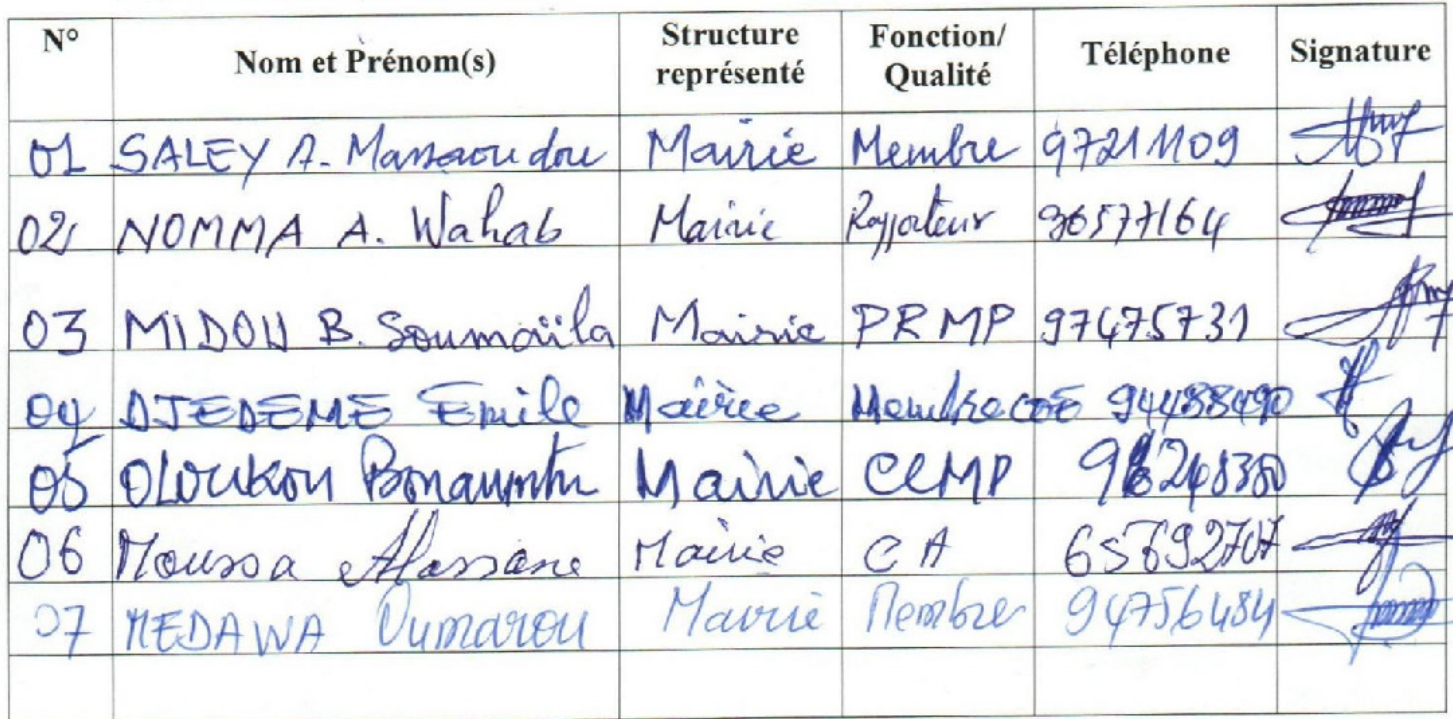 N° Nom et Prénom(s) Structure représenté Fonction/ Qualité Téléphone Signature
01 SALEY A. Massaoudou Mairie Membre 97211109
02 NOMMA A. Wahab Mairie Rapporteur 96577164
03 MIDOU B. Soumaïla Mairie PRMP 97475731
04 DJEDEME Emile Mairie Membre COE 94488490
05 OLOUKOU Mairie CCMP
06 Moussa Alassane Mairie CA 65692707
07 MEDAWA Oumarou Mairie Membre 94756484